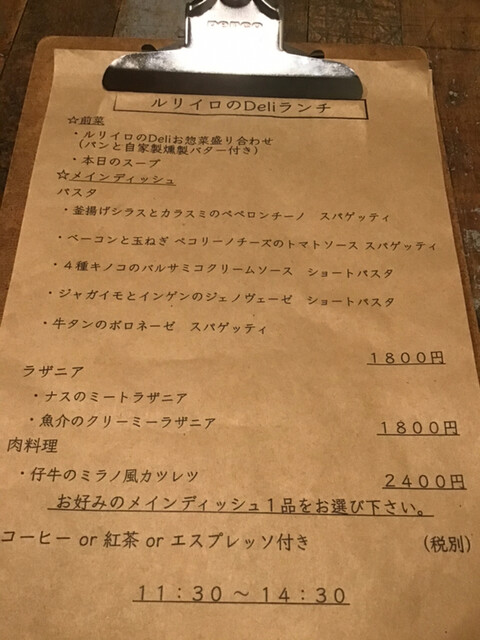 ルリイロのDeliランチ
☆前菜
・ルリイロのDeliお惣菜盛り合わせ
(パンと自家製燻製バター付き)
・本日のスープ
☆メインディッシュ
パスタ
・釜揚げシラスとカラスミのペペロンチーノ　スパゲッティ
・ベーコンと玉ねぎ ペコリーノチーズのトマトソース スパゲッティ
・４種キノコのバルサミコクリームソース　ショートパスタ
・ジャガイモとインゲンのジェノヴェーゼ　ショートパスタ
・牛タンのボロネーゼ　スパゲッティ
１８００円
ラザニア
・ナスのミートラザニア
・魚介のクリーミーラザニア　１８００円
肉料理
・仔牛のミラノ風カツレツ　２４００円
お好みのメインディッシュ１品をお選び下さい。
コーヒー or 紅茶 or エスプレッソ付き　(税別)
１１：３０ ～ １４：３０